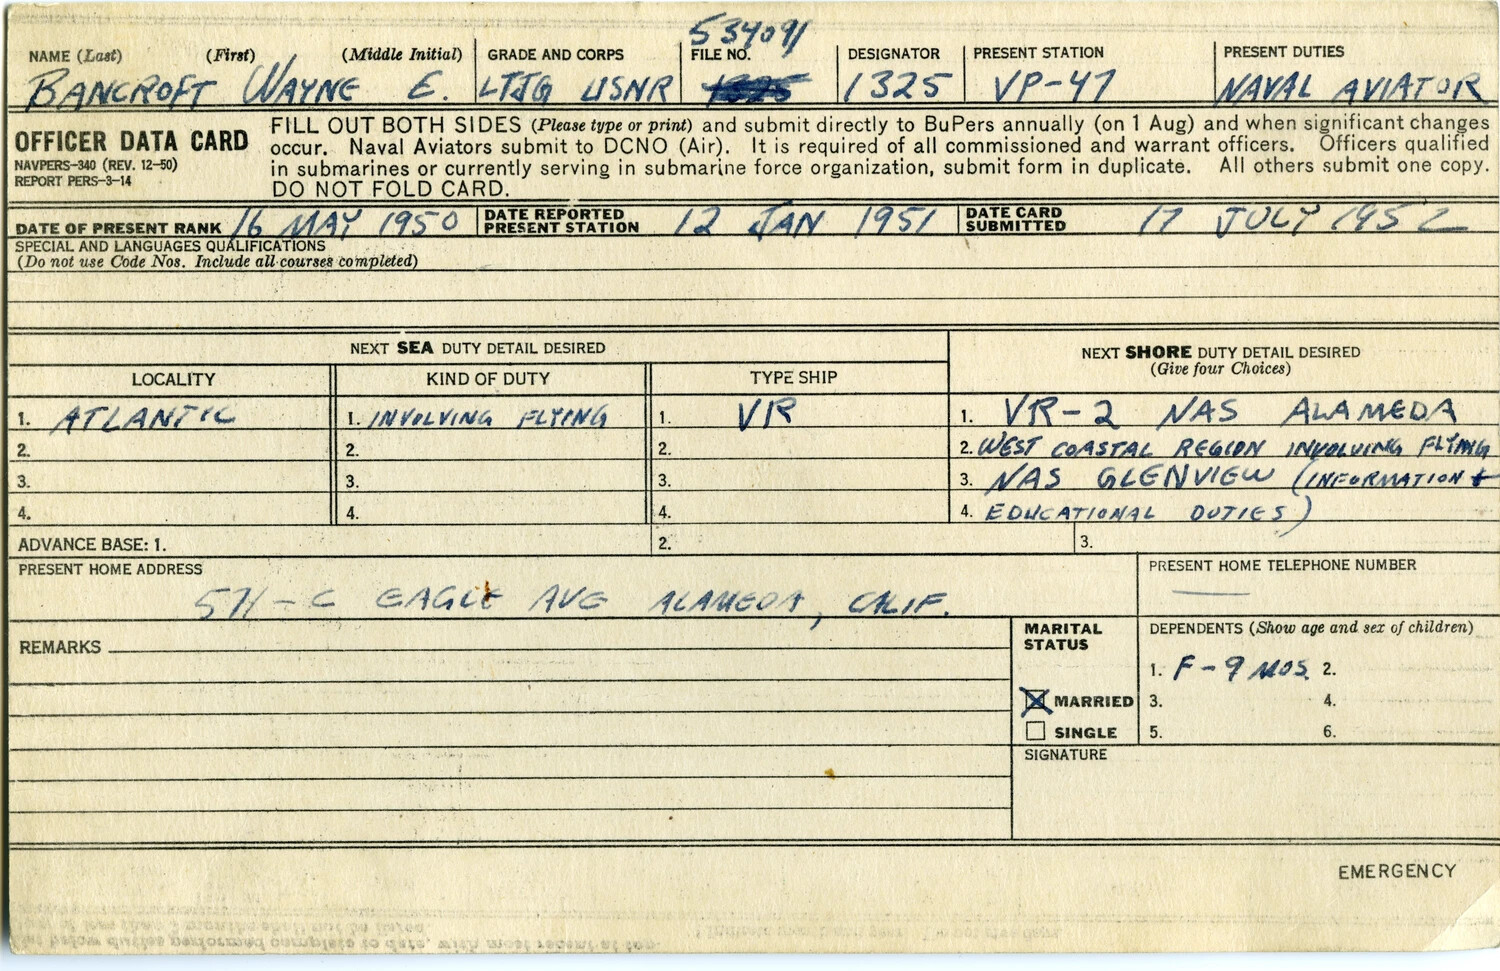 534091
NAME (Last) (First) (Middle Initial) GRADE AND CORPS FILE NO. DESIGNATOR PRESENT STATION PRESENT DUTIES
BANCROFT WAYNE E. LTJG USNR 1325 1325 VP-47 NAVAL AVIATOR
OFFICER DATA CARD
NAVPERS-340 (REV. 12-50)
REPORT PERS-3-14
FILL OUT BOTH SIDES (Please type or print) and submit directly to BuPers annually (on 1 Aug) and when significant changes
occur. Naval Aviators submit to DCNO (Air). It is required of all commissioned and warrant officers. Officers qualified
in submarines or currently serving in submarine force organization, submit form in duplicate. All others submit one copy.
DO NOT FOLD CARD.
DATE OF PRESENT RANK 16 MAY 1950 DATE REPORTED PRESENT STATION 12 JAN 1951 DATE CARD SUBMITTED 17 JULY 1952
SPECIAL AND LANGUAGES QUALIFICATIONS
(Do not use Code Nos. Include all courses completed)
NEXT SEA DUTY DETAIL DESIRED
NEXT SHORE DUTY DETAIL DESIRED
(Give four Choices)
LOCALITY KIND OF DUTY TYPE SHIP
1. ATLANTIC 1. INVOLVING FLYING 1. VR 1. VR-2 NAS ALAMEDA
2. 2. 2. 2. WEST COASTAL REGION INVOLVING FLYING
3. 3. 3. 3. NAS GLENVIEW (INFORMATION +
4. 4. 4. 4. EDUCATIONAL DUTIES)
ADVANCE BASE: 1. 2. 3.
PRESENT HOME ADDRESS PRESENT HOME TELEPHONE NUMBER
EAGLE AVE ALAMEDA, CALIF.
REMARKS
MARITAL STATUS
DEPENDENTS (Show age and sex of children)
1. F-9 MOS. 2.
MARRIED 3. 4.
SINGLE 5. 6.
SIGNATURE
EMERGENCY